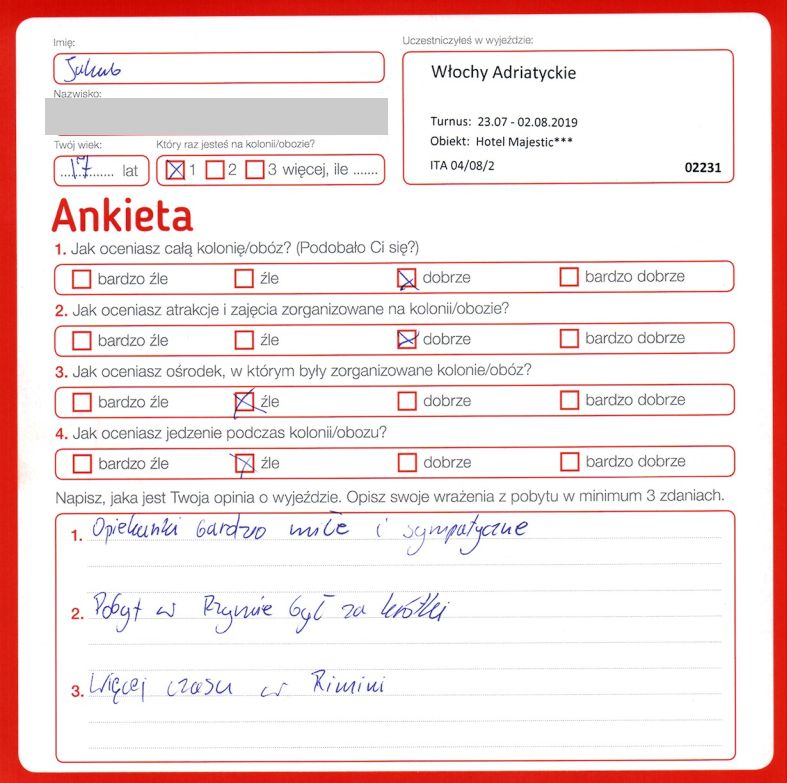 Imię:
Jakub
Nazwisko:
Twój wiek:
17 lat
Który raz jesteś na kolonii/obozie?
1 2 3 więcej, ile .......
Uczestniczyłeś w wyjeździe:
Włochy Adriatyckie
Turnus: 23.07 - 02.08.2019
Obiekt: Hotel Majestic***
ITA 04/08/2 02231
Ankieta
1. Jak oceniasz całą kolonię/obóz? (Podobało Ci się?)
bardzo źle źle dobrze bardzo dobrze
2. Jak oceniasz atrakcje i zajęcia zorganizowane na kolonii/obozie?
bardzo źle źle dobrze bardzo dobrze
3. Jak oceniasz ośrodek, w którym były zorganizowane kolonie/obóz?
bardzo źle źle dobrze bardzo dobrze
4. Jak oceniasz jedzenie podczas kolonii/obozu?
bardzo źle źle dobrze bardzo dobrze
Napisz, jaka jest Twoja opinia o wyjeździe. Opisz swoje wrażenia z pobytu w minimum 3 zdaniach.
1. Opiekunki bardzo miłe i sympatyczne
2. Pobyt w Rzymie był za krótki
3. Więcej czasu w Rimini